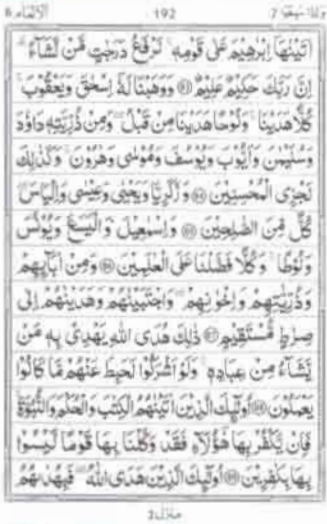 الانعام ٦ ١٩٢ واذا سمعوا ٧
اٰتَيْنٰهَاۤ اِبْرٰهِيْمَ عَلٰى قَوْمِهٖ ؕ نَرْفَعُ دَرَجٰتٍ مَّنْ نَّشَآءُ ؕ
اِنَّ رَبَّكَ حَكِيْمٌ عَلِيْمٌ ۝ وَوَهَبْنَا لَهٗۤ اِسْحٰقَ وَيَعْقُوْبَ ؕ
كُلًّا هَدَيْنَا ۚ وَنُوْحًا هَدَيْنَا مِنْ قَبْلُ وَمِنْ ذُرِّيَّتِهٖ دَاوٗدَ
وَسُلَيْمٰنَ وَاَيُّوْبَ وَيُوْسُفَ وَمُوْسٰى وَهٰرُوْنَ ؕ وَكَذٰلِكَ
نَجْزِى الْمُحْسِنِيْنَ ۝ وَزَكَرِيَّا وَيَحْيٰى وَعِيْسٰى وَاِلْيَاسَ ؕ
كُلٌّ مِّنَ الصّٰلِحِيْنَ ۝ وَاِسْمٰعِيْلَ وَالْيَسَعَ وَيُوْنُسَ
وَلُوْطًا ؕ وَكُلًّا فَضَّلْنَا عَلَى الْعٰلَمِيْنَ ۝ وَمِنْ اٰبَآئِهِمْ
وَذُرِّيّٰتِهِمْ وَاِخْوَانِهِمْ ۚ وَاجْتَبَيْنٰهُمْ وَهَدَيْنٰهُمْ اِلٰى
صِرَاطٍ مُّسْتَقِيْمٍ ۝ ذٰلِكَ هُدَى اللّٰهِ يَهْدِىْ بِهٖ مَنْ
يَّشَآءُ مِنْ عِبَادِهٖ ؕ وَلَوْ اَشْرَكُوْا لَحَبِطَ عَنْهُمْ مَّا كَانُوْا
يَعْمَلُوْنَ ۝ اُولٰٓئِكَ الَّذِيْنَ اٰتَيْنٰهُمُ الْكِتٰبَ وَالْحُكْمَ وَالنُّبُوَّةَ ۚ
فَاِنْ يَّكْفُرْ بِهَا هٰٓؤُلَآءِ فَقَدْ وَكَّلْنَا بِهَا قَوْمًا لَّيْسُوْا
بِهَا بِكٰفِرِيْنَ ۝ اُولٰٓئِكَ الَّذِيْنَ هَدَى اللّٰهُ فَبِهُدٰىهُمُ
منزل ٢